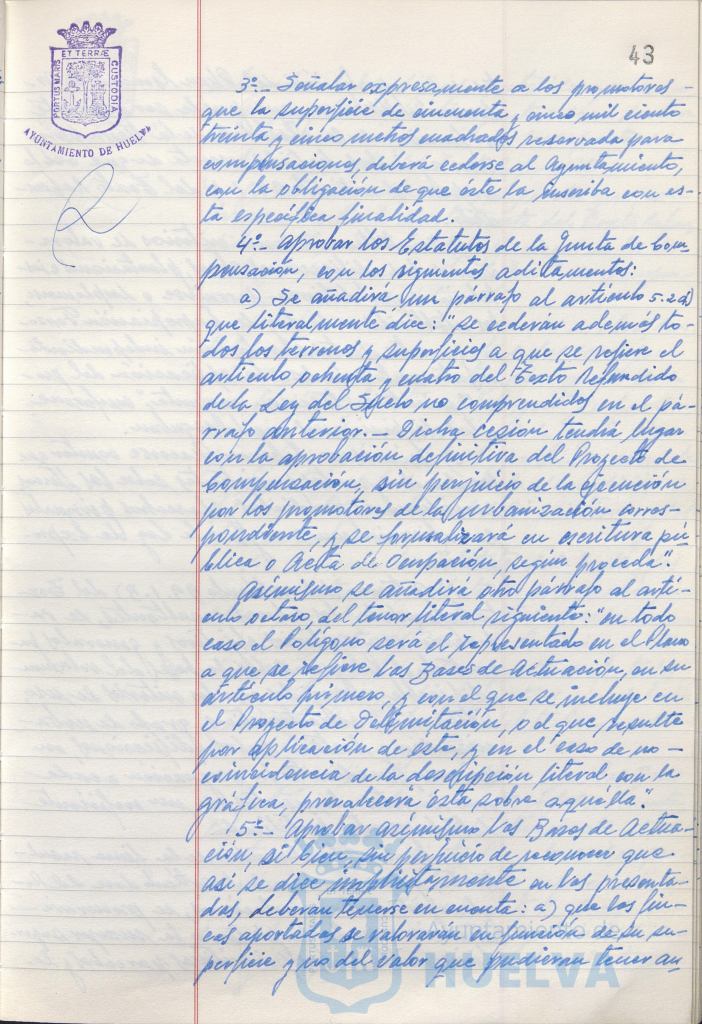 PORTUS MARIS ET TERRÆ CUSTODIA
AYUNTAMIENTO DE HUELVA
43
3º.- Señalar expresamente a los promotores -
que la superficie de cincuenta y cinco mil ciento
treinta y cinco metros cuadrados reservada para
compensaciones, deberá cederse al Ayuntamiento,
con la obligación de que éste la inscriba con es-
ta específica finalidad.
4º.- Aprobar los Estatutos de la Junta de Com-
pensación, con los siguientes aditamentos:
a) Se añadirá un párrafo al artículo 5.2 d)
que literalmente dice: "se cederán además to-
dos los terrenos y superficies a que se refiere el
artículo ochenta y cuatro del Texto Refundido
de la Ley del Suelo no comprendidos en el pá-
rrafo anterior.- Dicha cesión tendrá lugar
con la aprobación definitiva del Proyecto de
Compensación, sin perjuicio de la ejecución
por los promotores de la urbanización corres-
pondiente, y se formalizará en escritura pú-
blica o Acta de Ocupación, según proceda".
Asimismo se añadirá otro párrafo al artí-
culo octavo, del tenor literal siguiente: "en todo
caso el Polígono será el representado en el Plano
a que se refiere las Bases de Actuación, en su
artículo primero, y con el que se incluye en
el Proyecto de Delimitación, o el que resulte
por aplicación de éste, y en el caso de no -
coincidencia de la descripción literal con la
gráfica, prevalecerá ésta sobre aquélla".
5º.- Aprobar asimismo las Bases de Actua-
ción, si bien, sin perjuicio de reconocer que
así se dice implícitamente en las presenta-
das, deberán tenerse en cuenta: a) que las fin-
cas aportadas se valorarán en función de su su-
perficie y no del valor que pudieran tener an-
Ayuntamiento de
HUELVA